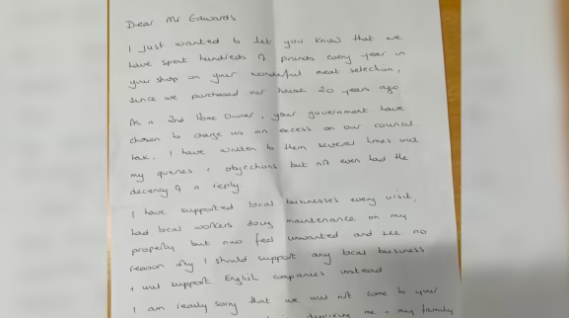 Dear Mr Edwards
I just wanted to let you know that we
have spent hundreds of pounds every year in
your shop on your wonderful meat selection,
since we purchased our house 20 years ago
As a 2nd Home Owner, your government have
chosen to charge us an excess on our council
tax. I have written to them several times and
my queries & objections but not even had the
decency of a reply
I have supported local businesses every visit,
had local workers doing maintenance on my
property but now feel unwanted and see no
reason why I should support any local business
& will support English companies instead
I am really sorry that we will not come to your
depriving me & my family